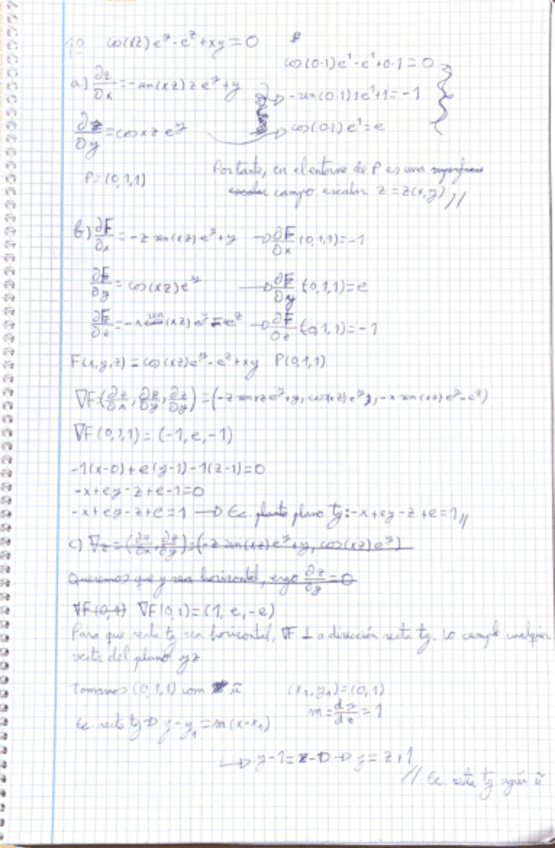 1º cos(xz)e^y-e^z+xy=0
cos(0·1)e^1-e^1+0·1=0
a) ∂z/∂x=-sen(xz)ze^y+y
-sen(0·1)1e^1+1=-1
∂z/∂y=cosxz e^y
cos(0·1)e^1=e
P=(0,1,1)
Por tanto, en el entorno de P es una superficie
escalar campo escalar z=z(x,y)//
b) ∂F/∂x=-z sen(xz)e^y+y → ∂F/∂x(0,1,1)=-1
∂F/∂y=cos(xz)e^y → ∂F/∂y(0,1,1)=e
∂F/∂z=-x sen(xz)e^y-e^z → ∂F/∂z(0,1,1)=-1
F(x,y,z)=cos(xz)e^y-e^z+xy P(0,1,1)
∇F(∂z/∂x,∂z/∂y,∂z/∂y)=(-z senxz e^y+y, cos(xz)e^y, -x sen(xz)e^y-e^z)
∇F(0,1,1)=(-1,e,-1)
-1(x-0)+e(y-1)-1(z-1)=0
-x+ey-z+e-1=0
-x+ey-z+e=1 → Ec plano tg:-x+ey-z+e=1//
c) ∇z=(∂z/∂x,∂z/∂y)=(-z sen(xz)e^y+y, cos(xz)e^y)
Queremos que y sea horizontal, ergo ∂z/∂y=0
∇F(0,1) ∇F(0,1)=(1,e,-e)
Para que recta tg sea horizontal, ∇F ⊥ a dirección recta tg. Lo cumple cualquier
vector del plano yz
Tomamos (0,1,1) com ū
(x₁,y₁)=(0,1)
Ec recta tg→ y-y₁=m(x-x₁)
m==1
→ y-1=z-0→y=z+1
// Ec. recta tg según ū